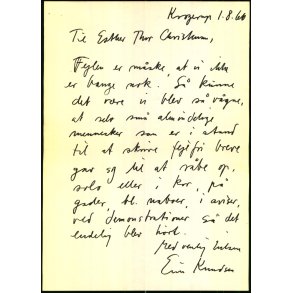 Krogerup 1.8.66
Til Esther Thor Christensen,
Fejlen er måske at vi ikke
er bange nok. Så kunne
det være vi blev så vågne,
at selv små almindelige
mennesker som er i stand
til at skrive fejlfri breve
gav sig til at råbe op,
solo eller i kor, på
gader, bl. naboer, i aviser,
ved demonstrationer så det
endelig blev hørt.
Med venlig hilsen
Erik Knudsen